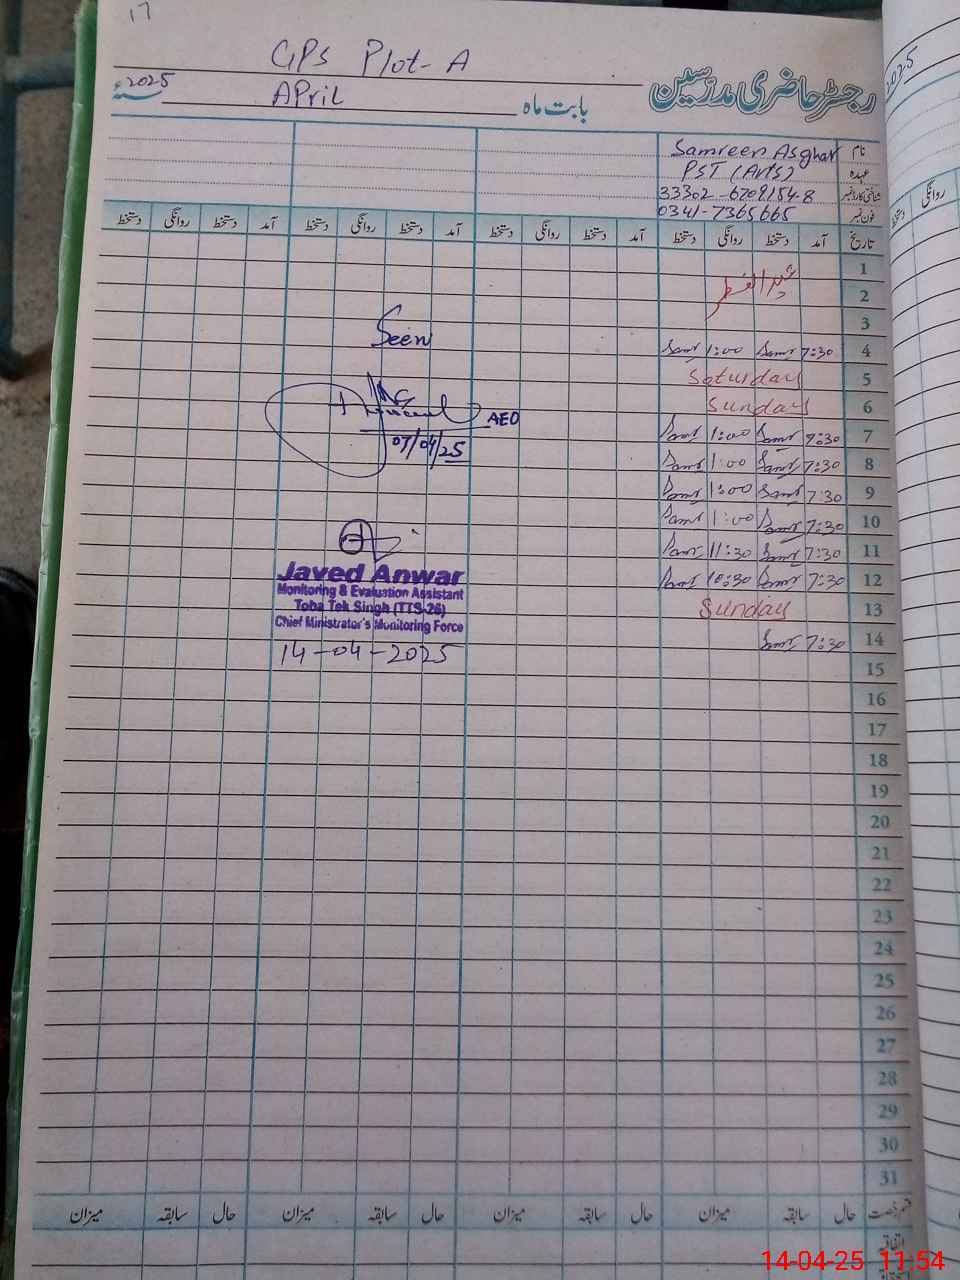 17
GPS Plot-A
رجسٹر حاضری مدرسین
بابت ماہ APRil 2025ء
نام Samreen Asghar
عہدہ PST (Arts)
شناختی کارڈ نمبر 33302-6709154-8
فون نمبر 0341-7365665
تاریخ آمد دستخط روانگی دستخط آمد دستخط روانگی دستخط آمد دستخط روانگی دستخط آمد دستخط روانگی دستخط
1
2 عید الفطر
3
4 7:30 Samr 1:00 Samr
5 Saturday
6 Sunday
7 7:30 Samr 1:00 Samr
8 7:30 Samr 1:00 Samr
9 7:30 Samr 1:00 Samr
10 7:30 Samr 1:00 Samr
11 7:30 Samr 11:30 Samr
12 7:30 Samr 10:30 Samr
13 Sunday
14 7:30 Samr
15
16
17
18
19
20
21
22
23
24
25
26
27
28
29
30
31
Seen
AEO
07/04/25
Javed Anwar
Monitoring & Evaluation Assistant
Toba Tek Singh (TTS-26)
Chief Minister's Monitoring Force
14-04-2025
قسم رخصت حال سابقہ میزان حال سابقہ میزان حال سابقہ میزان حال سابقہ میزان
اتفاقیہ
2025
روانگی دستخط
14-04-25 11:54